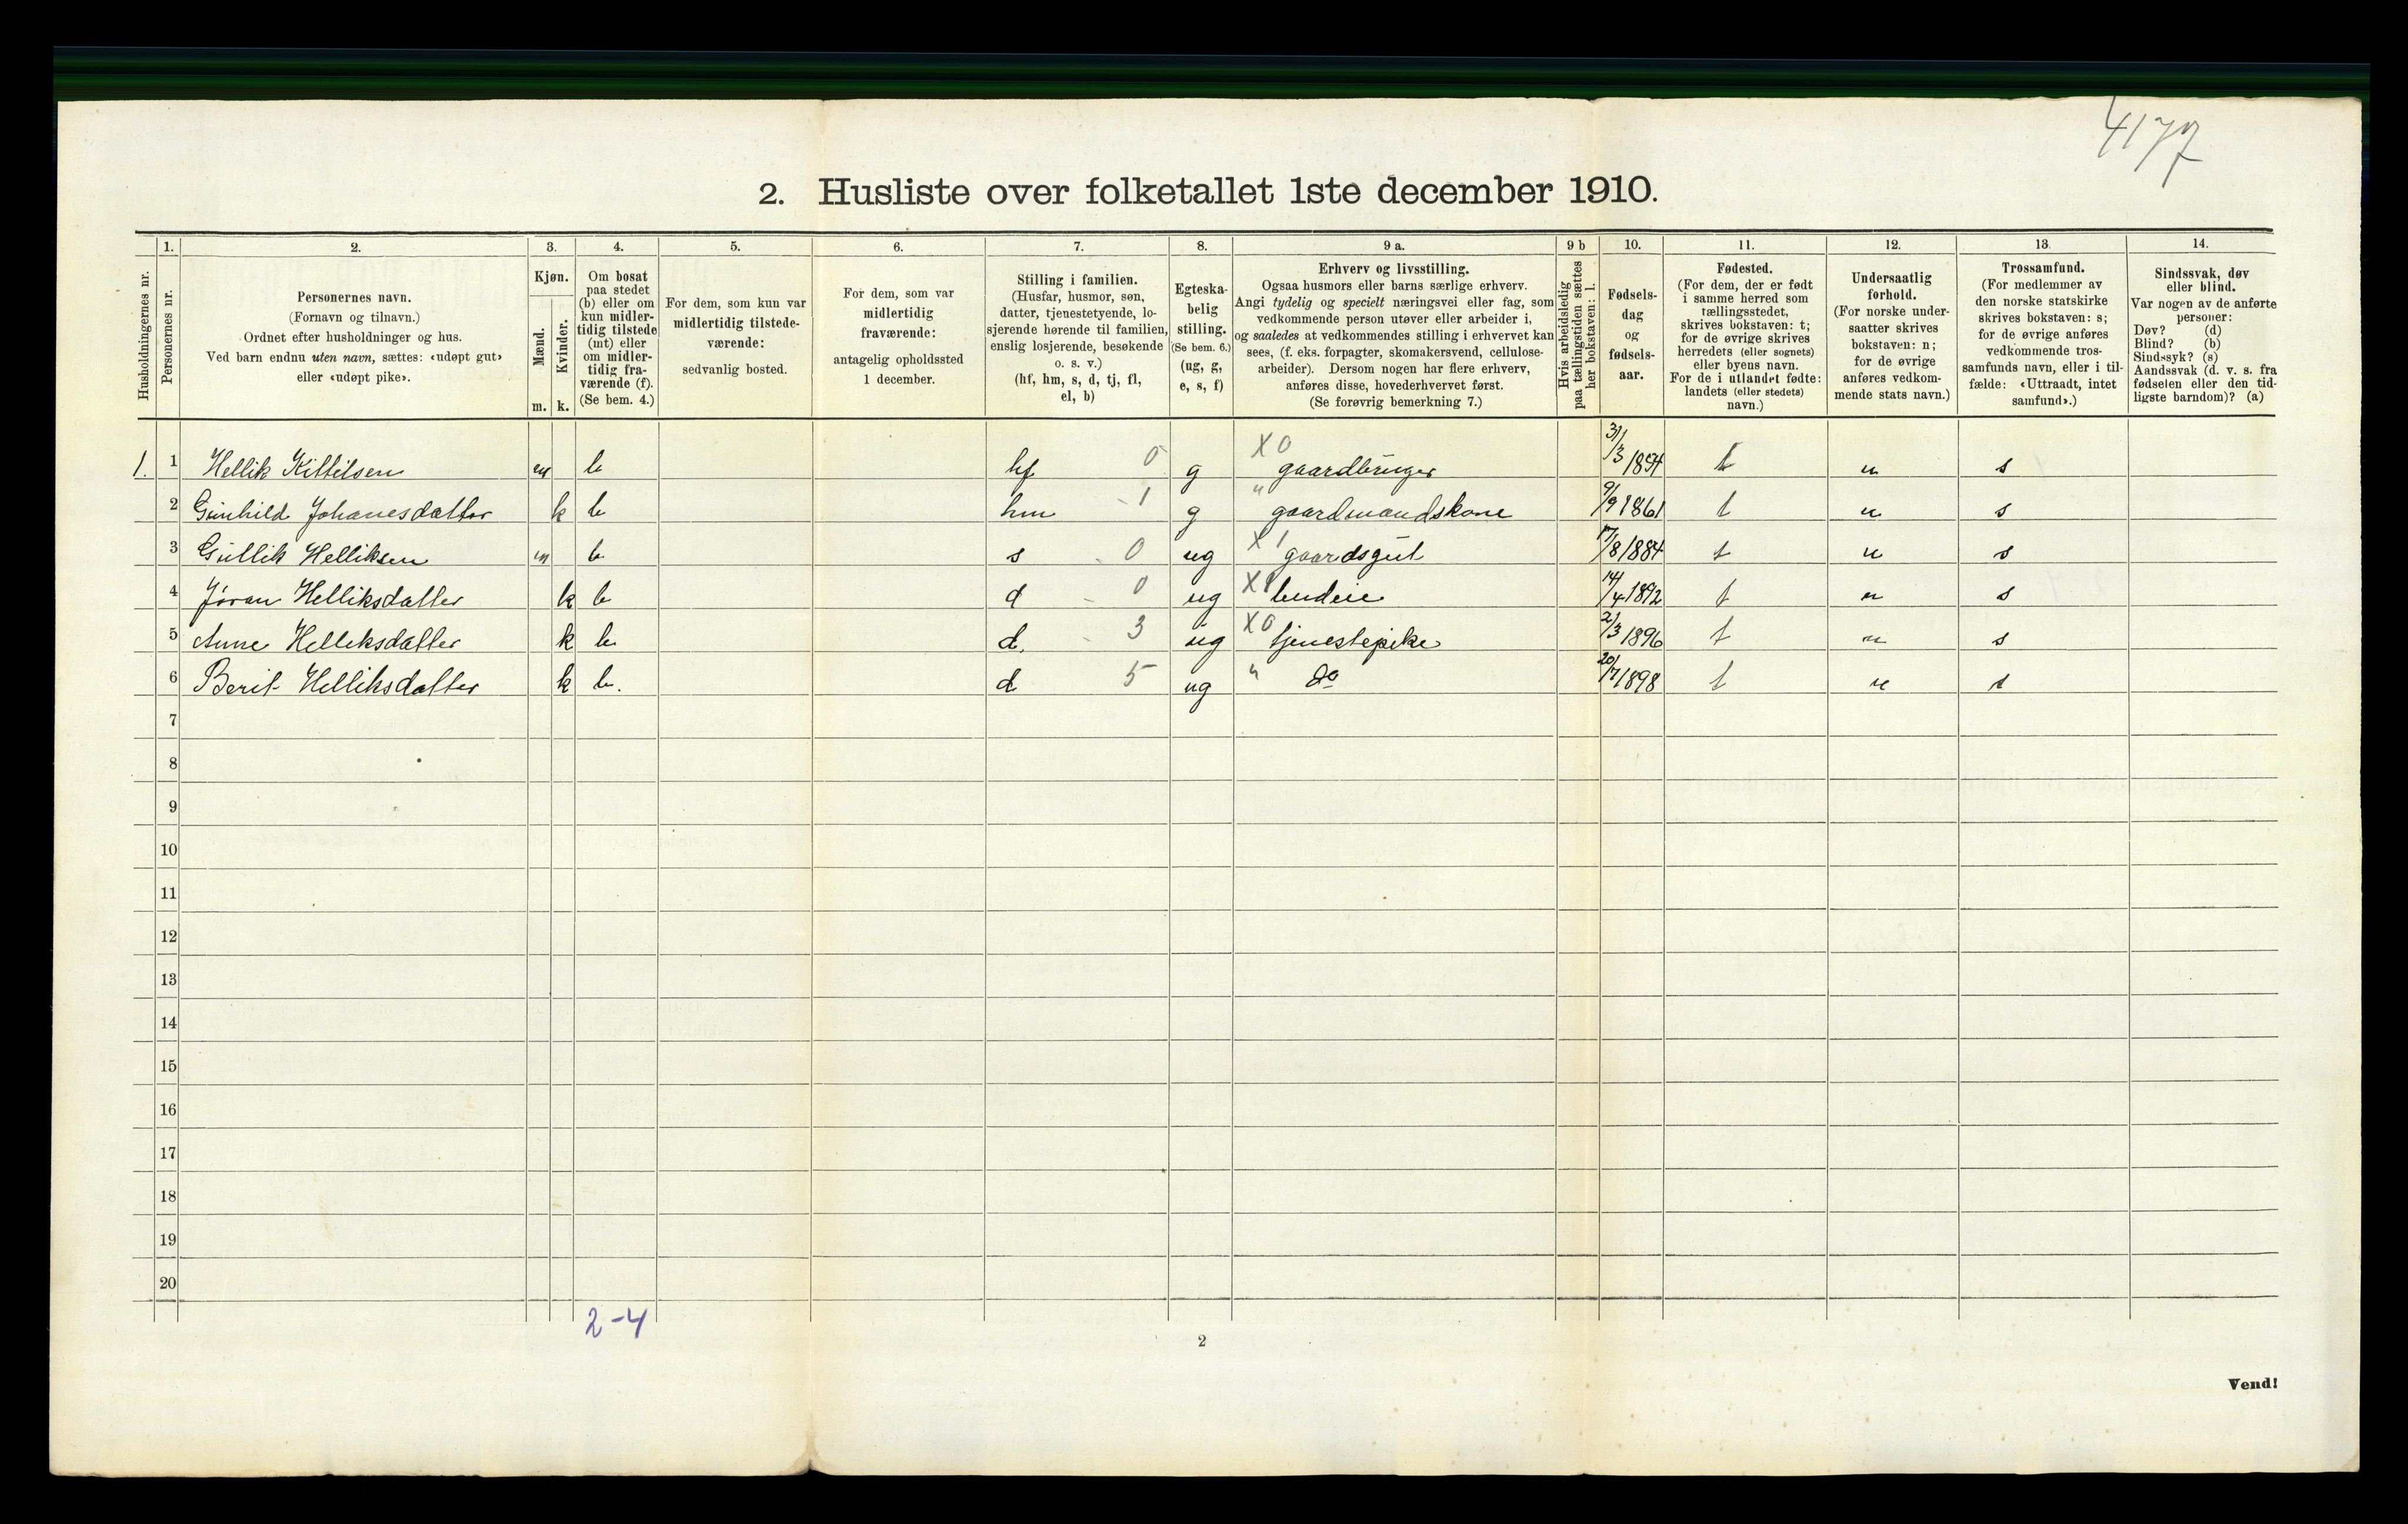 4177
2. Husliste over folketallet 1ste december 1910.
Husholdningernes nr.
1.
Personernes nr.
2.
Personernes navn.
(Fornavn og tilnavn.)
Ordnet efter husholdninger og hus.
Ved barn endnu uten navn, sættes: «udøpt gut»
eller «udøpt pike».
3.
Kjøn.
Mænd.
Kvinder.
m. k.
4.
Om bosat
paa stedet
(b) eller om
kun midler-
tidig tilstede
(mt) eller
om midler-
tidig fra-
værende (f).
(Se bem. 4.)
5.
For dem, som kun var
midlertidig tilstede-
værende:
sedvanlig bosted.
6.
For dem, som var
midlertidig
fraværende:
antagelig opholdssted
1 december.
7.
Stilling i familien.
(Husfar, husmor, søn,
datter, tjenestetyende, lo-
sjerende hørende til familien,
enslig losjerende, besøkende
o. s. v.)
(hf, hm, s, d, tj, fl,
el, b)
8.
Egteska-
belig
stilling.
(Se bem. 6.)
(ug, g,
e, s, f)
9 a.
Erhverv og livsstilling.
Ogsaa husmors eller barns særlige erhverv.
Angi tydelig og specielt næringsvei eller fag, som
vedkommende person utøver eller arbeider i,
og saaledes at vedkommendes stilling i erhvervet kan
sees, (f. eks. forpagter, skomakersvend, cellulose-
arbeider). Dersom nogen har flere erhverv,
anføres disse, hovederhvervet først.
(Se forøvrig bemerkning 7.)
9 b
Hvis arbeidsledig
paa tællingstiden sættes
her bokstaven: l.
10.
Fødsels-
dag
og
fødsels-
aar.
11.
Fødested.
(For dem, der er født
i samme herred som
tællingsstedet,
skrives bokstaven: t;
for de øvrige skrives
herredets (eller sognets)
eller byens navn.
For de i utlandet fødte:
landets (eller stedets)
navn.)
12.
Undersaatlig
forhold.
(For norske under-
saatter skrives
bokstaven: n;
for de øvrige
anføres vedkom-
mende stats navn.)
13.
Trossamfund.
(For medlemmer av
den norske statskirke
skrives bokstaven: s;
for de øvrige anføres
vedkommende tros-
samfunds navn, eller i til-
fælde: «Uttraadt, intet
samfund».)
14.
Sindssvak, døv
eller blind.
Var nogen av de anførte
personer:
Døv? (d)
Blind? (b)
Sindssyk? (s)
Aandssvak (d. v. s. fra
fødselen eller den tid-
ligste barndom)? (a)
1. 1 Hellik Kittilsen m b hf 0 g X0 gaardbruger 31/3 1854 t n s
2 Gunhild Johanesdatter k b hm - 1 g " gaardmandskone 9/9 1861 t n s
3 Gullik Helliksen m b s - 0 ug X1 gaardsgut 17/8 1884 t n s
4 Jøran Helliksdatter k b d - 0 ug X1 budeie 14/4 1892 t n s
5 Anne Helliksdatter k b d. - 3 ug X0 tjenestepike 2/3 1896 t n s
6 Berit Helliksdatter k b. d 5 ug " do 20/7 1898 t n s
7
8
9
10
11
12
13
14
15
16
17
18
19
20
2-4
2
Vend!